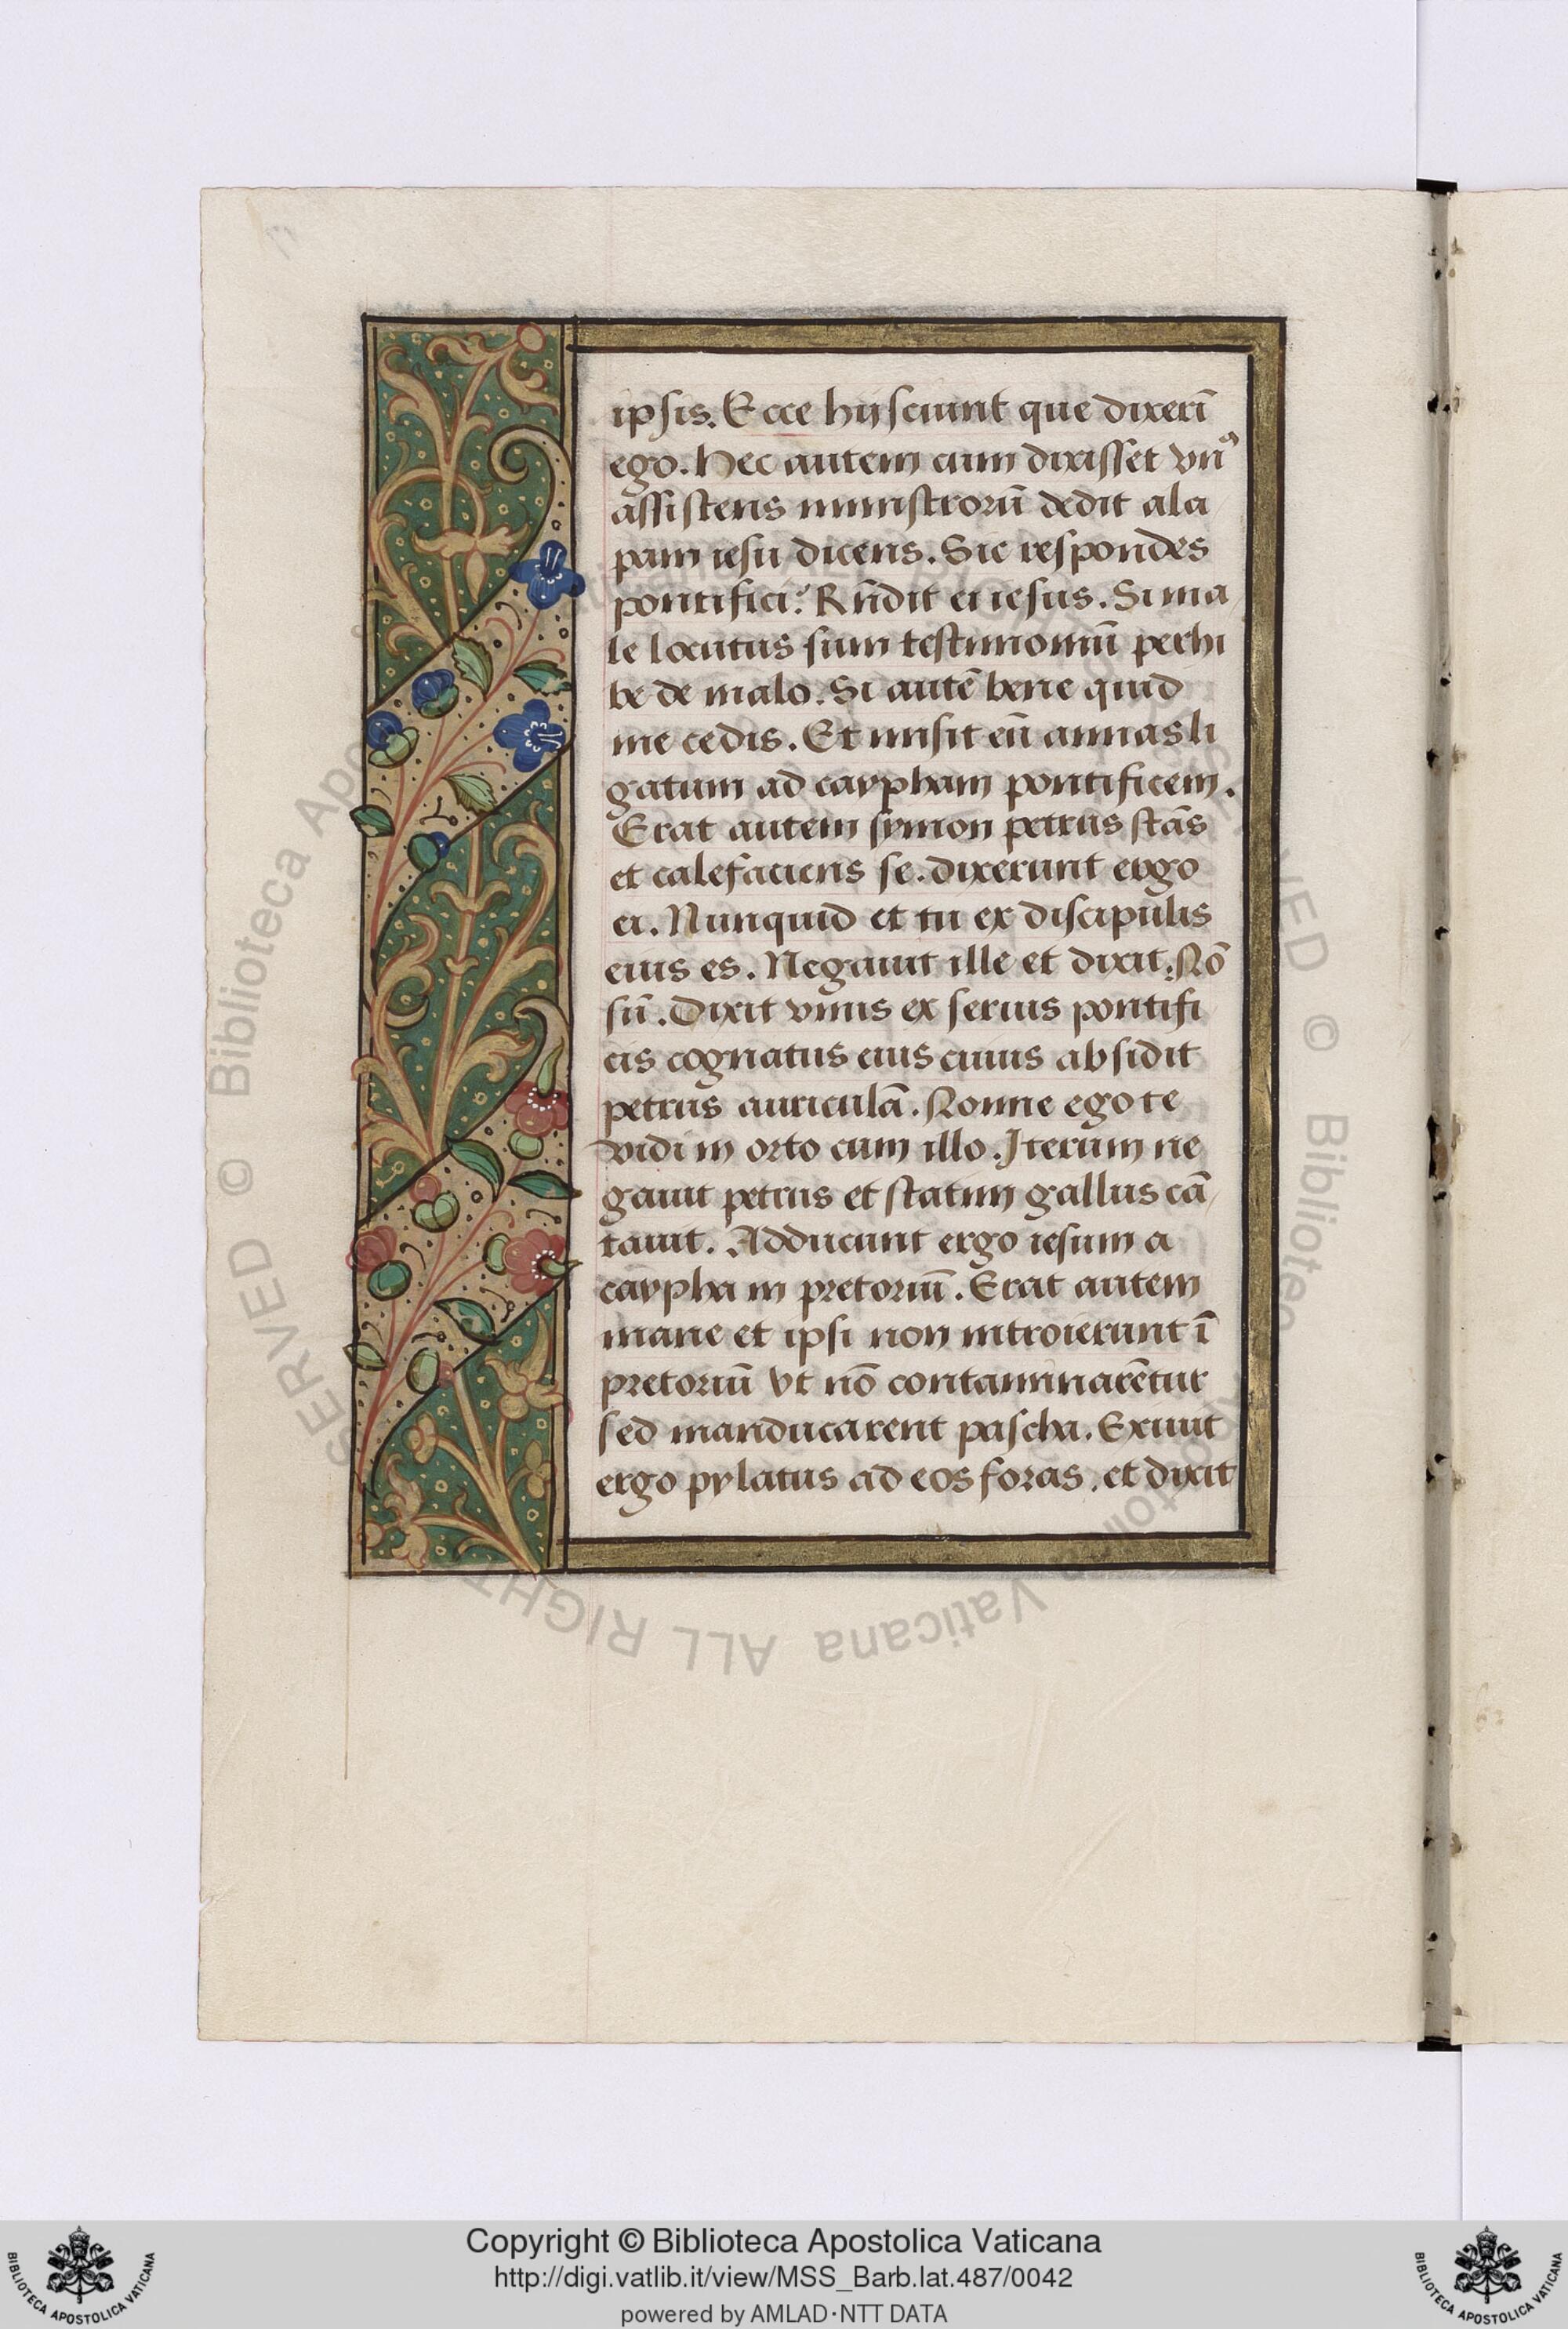 ipsis. Ecce hij sciunt que dixerī
ego. Hec autem cum dixisset vnꝰ
assistens ministrorū dedit ala
pam iesu dicens. Sic respondes
pontifici? Rn̄dit ei iesus. Si ma
le locutus sum testimoniū perhi
be de malo. Si autē bene quid
me cedis. Et misit eū annas li
gatum ad caypham pontificem.
Erat autem symon petrus stās
et calefaciens se. dixerunt ergo
ei. Nunquid et tu ex discipulis
eius es. Negauit ille et dixit. Nō
sū. Dixit vnus ex seruis pontifi
cis cognatus eius cuius absidit
petrus auriculā. Nonne ego te
vidi in orto cum illo. Iterum ne
gauit petrus et statim gallus cā
tauit. Adducunt ergo iesum a
caypha in pretoriū. Erat autem
mane et ipsi non introierunt ī
pretoriū vt nō contaminarētur
sed manducarent pascha. Exiuit
ergo pylatus ad eos foras. et dixit
SERVED © Biblioteca Apostolica Vaticana ALL RIGHTS
Copyright © Biblioteca Apostolica Vaticana
http://digi.vatlib.it/view/MSS_Barb.lat.487/0042
powered by AMLAD·NTT DATA
BIBLIOTECA APOSTOLICA VATICANA
BIBLIOTECA APOSTOLICA VATICANA